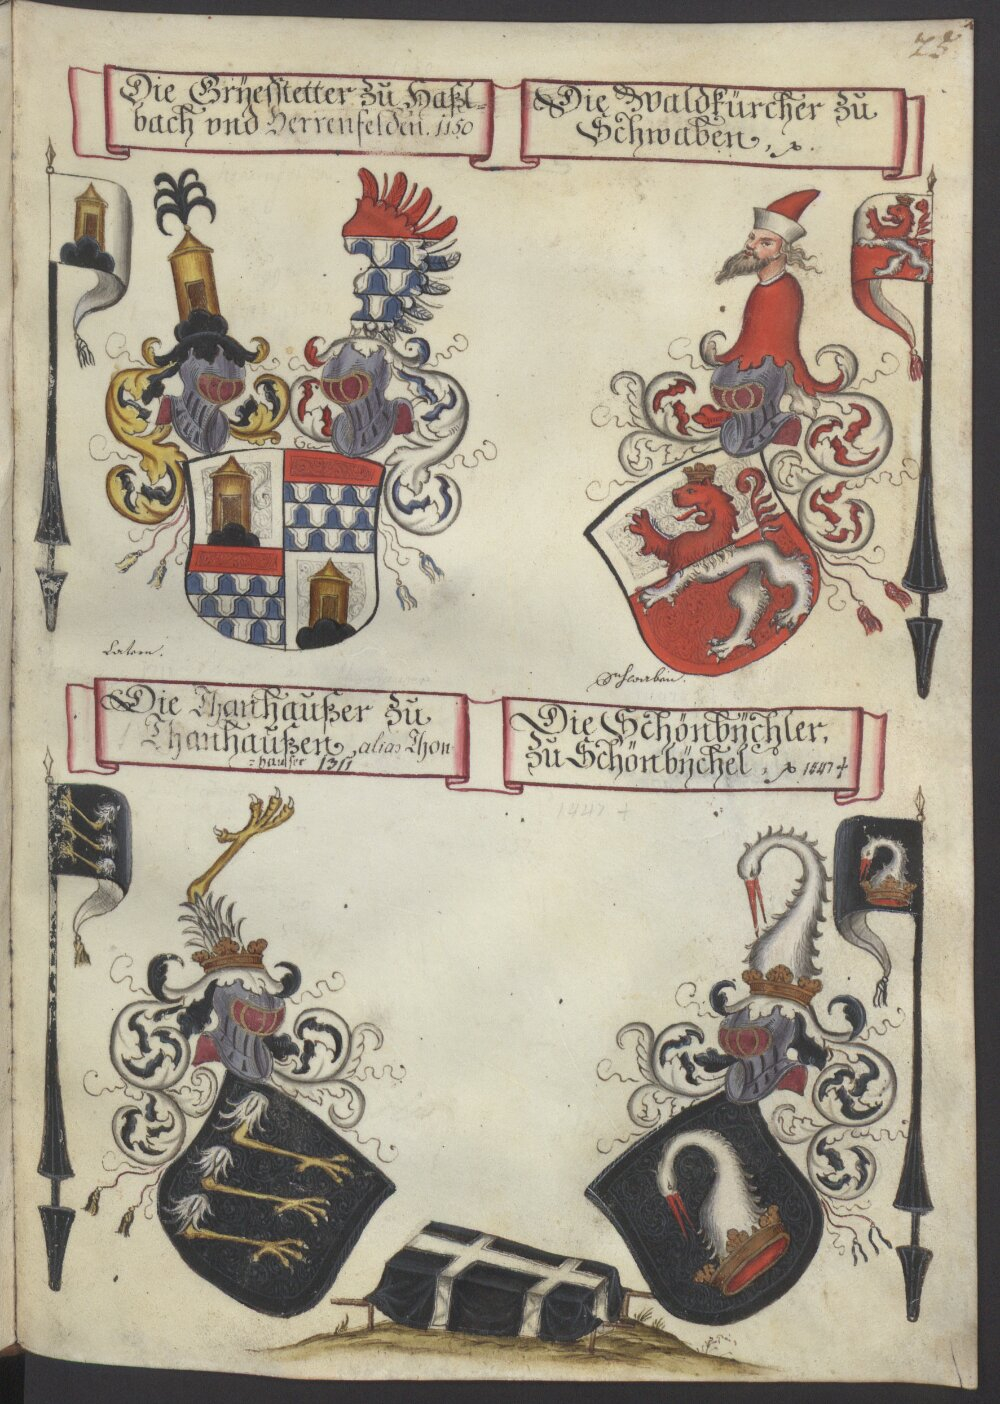 Die Gryesstetter zu Haßl-
bach vnd Herrenfelden. 1150
Die Waldkürcher zu
Schwaben,
Schwaben.
Die Thanhaußer zu
Thanhaußen, alias Thon-
=hauser 1311
Die Schönbÿchler,
zu Schönbÿchel, 1447 †
1447 †